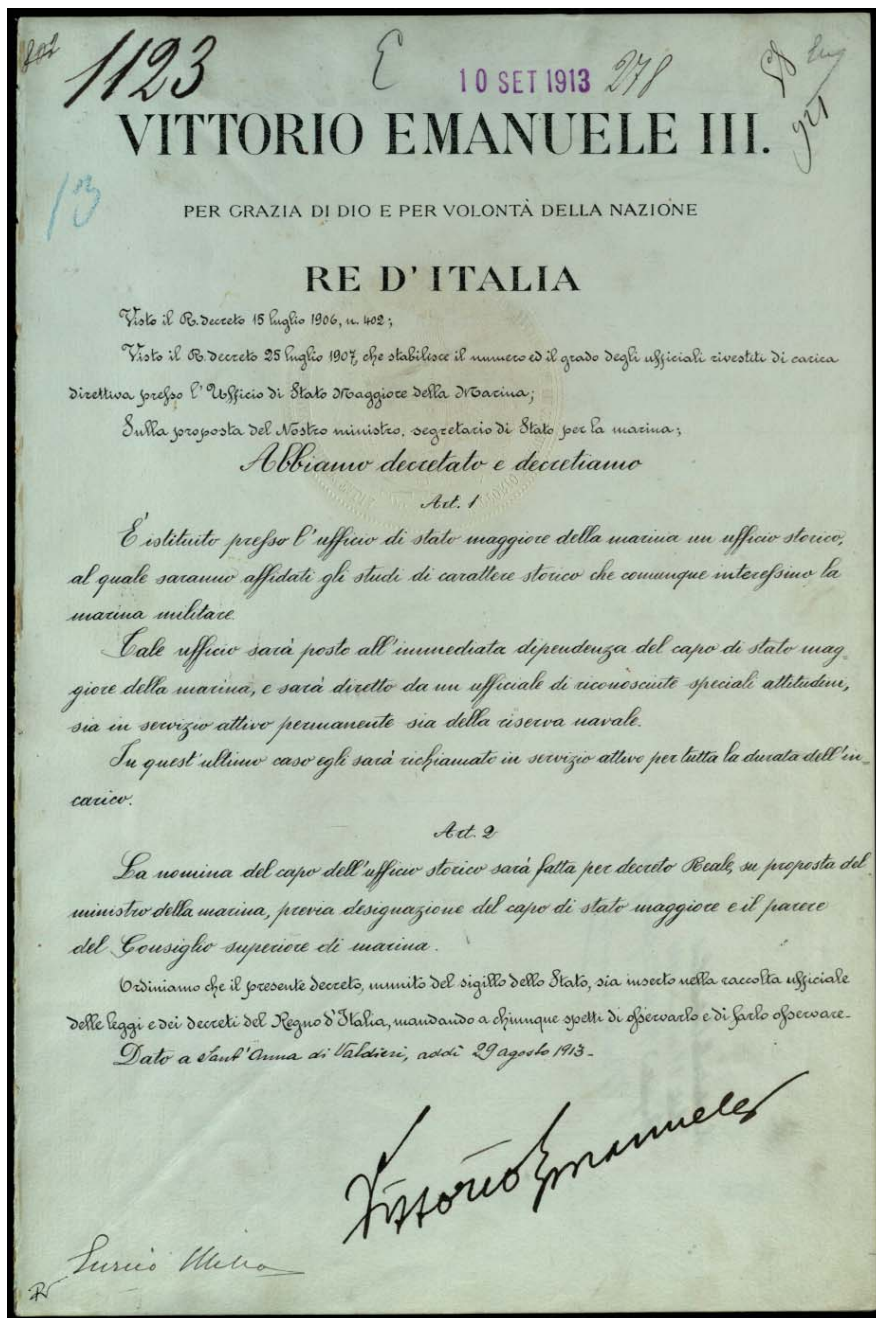 1123 E 10 SET 1913 278
VITTORIO EMANUELE III.
13
PER GRAZIA DI DIO E PER VOLONTÀ DELLA NAZIONE
RE D'ITALIA
Visto il R. decreto 15 luglio 1906, n. 402;
Visto il R. decreto 25 luglio 1907, che stabilisce il numero ed il grado degli ufficiali rivestiti di carica
direttiva presso l'Ufficio di Stato Maggiore della Marina;
Sulla proposta del Nostro ministro, segretario di Stato per la marina;
Abbiamo decretato e decretiamo
Art. 1
È istituito presso l'ufficio di stato maggiore della marina un ufficio storico,
al quale saranno affidati gli studi di carattere storico che comunque interessino la
marina militare.
Tale ufficio sarà posto all'immediata dipendenza del capo di stato mag-
giore della marina, e sarà diretto da un ufficiale di riconosciute speciali attitudini,
sia in servizio attivo permanente sia della riserva navale.
In quest'ultimo caso egli sarà richiamato in servizio attivo per tutta la durata dell'in-
carico.
Art. 2
La nomina del capo dell'ufficio storico sarà fatta per decreto Reale, su proposta del
ministro della marina, previa designazione del capo di stato maggiore e il parere
del Consiglio superiore di marina.
Ordiniamo che il presente decreto, munito del sigillo dello Stato, sia inserto nella raccolta ufficiale
delle leggi e dei decreti del Regno d'Italia, mandando a chiunque spetti di osservarlo e di farlo osservare.
Dato a Sant'Anna di Valdieri, addì 29 agosto 1913.
Vittorio Emanuele